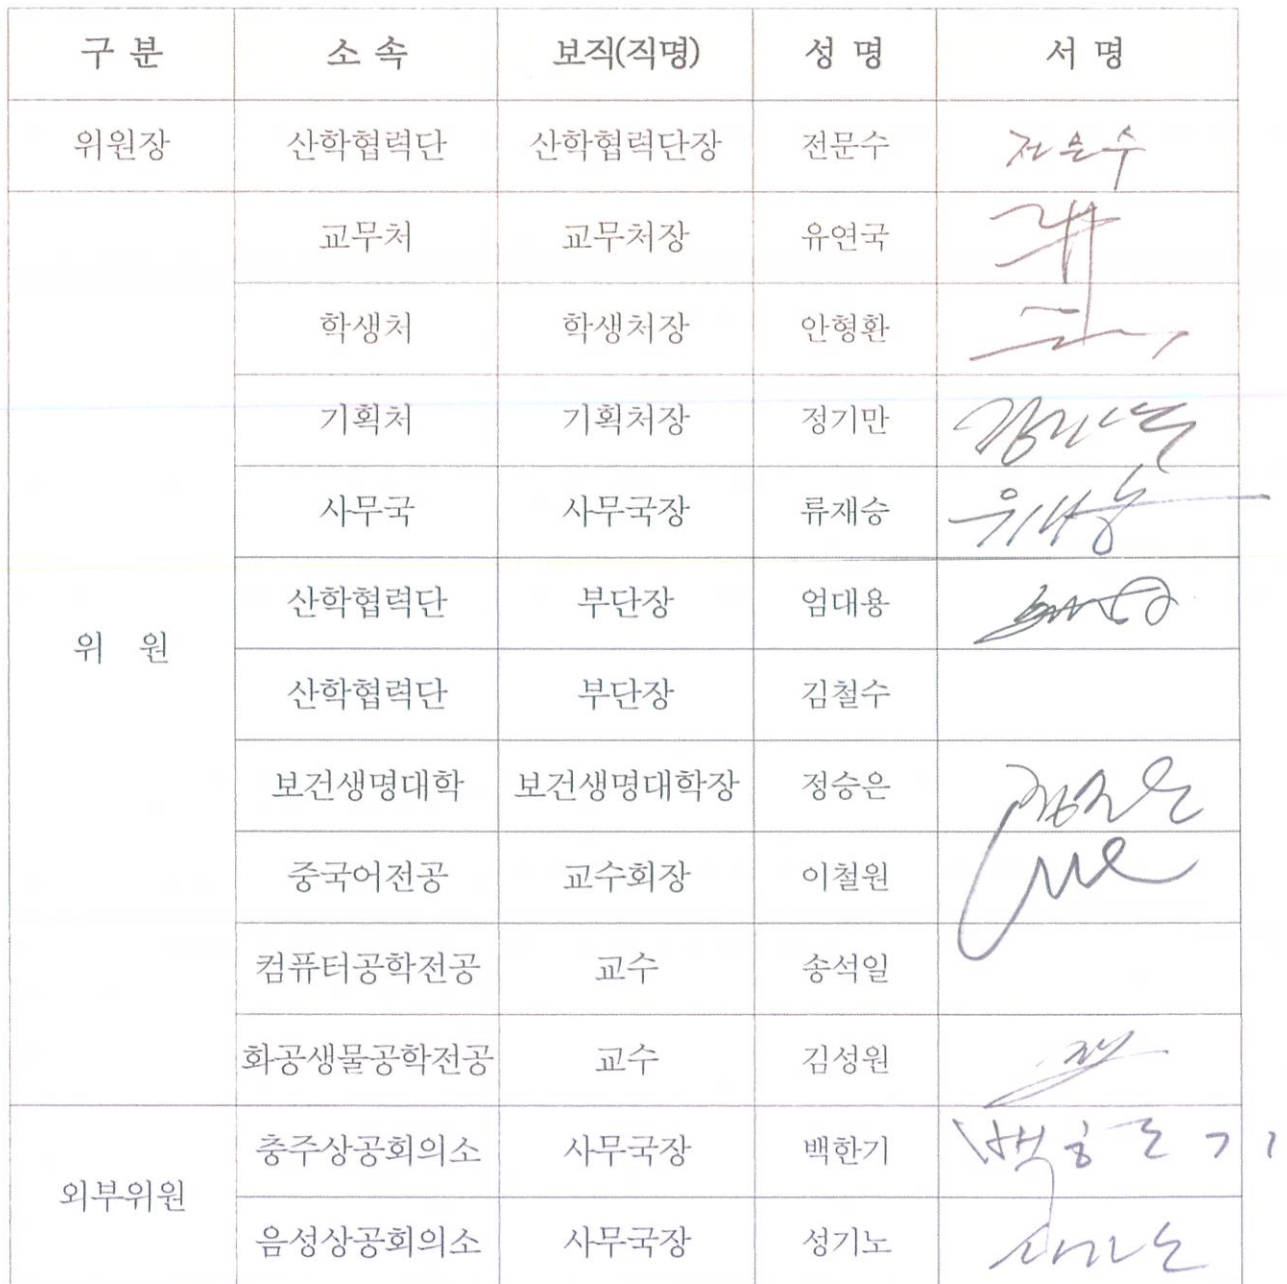 구 분 소 속 보직(직명) 성 명 서 명
위원장 산학협력단 산학협력단장 전문수 전문수
교무처 교무처장 유연국
학생처 학생처장 안형환
기획처 기획처장 정기만
사무국 사무국장 류재승
산학협력단 부단장 엄대용
위 원
산학협력단 부단장 김철수
보건생명대학 보건생명대학장 정승은
중국어전공 교수회장 이철원
컴퓨터공학전공 교수 송석일
화공생물공학전공 교수 김성원
충주상공회의소 사무국장 백한기 백한기
외부위원
음성상공회의소 사무국장 성기노